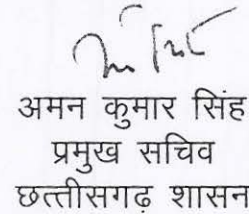 अमन कुमार सिंह
प्रमुख सचिव
छत्तीसगढ़ शासन